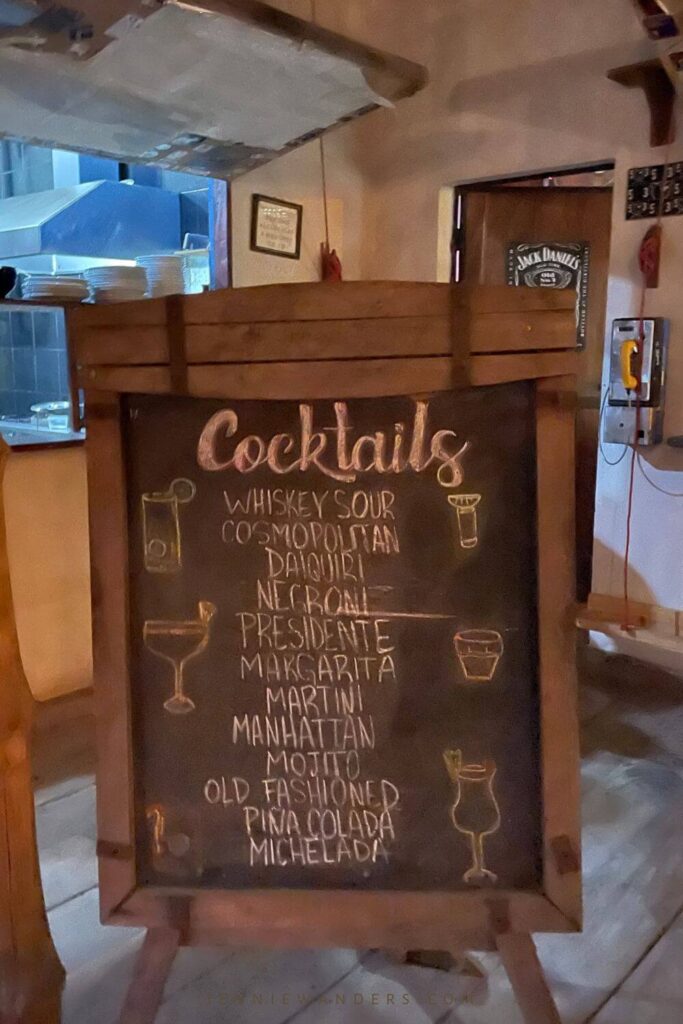 JACK DANIEL'S
Cocktails
WHISKEY SOUR
COSMOPOLITAN
DAIQUIRI
NEGRONI
PRESIDENTE
MARGARITA
MARTINI
MANHATTAN
MOJITO
OLD FASHIONED
PIÑA COLADA
MICHELADA
JENNIEWANDERS.COM